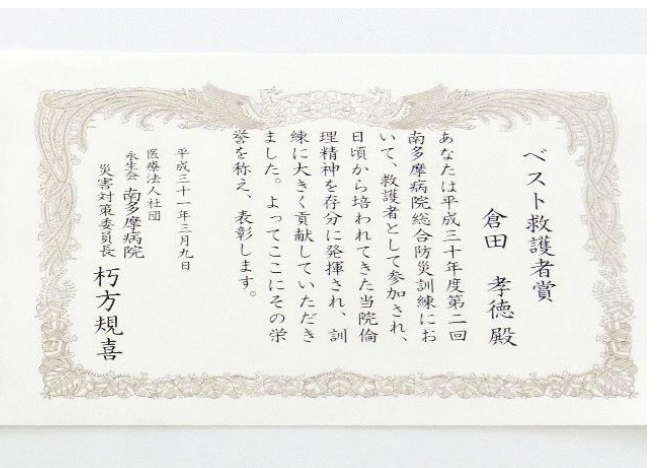 ベスト救護者賞
倉田 孝徳 殿
あなたは平成三十年度第二回
南多摩病院総合防災訓練にお
いて、救護者として参加され、
日頃から培われてきた当院倫
理精神を存分に発揮され、訓
練に大きく貢献していただき
ました。よってここにその栄
誉を称え、表彰します。
平成三十一年三月九日
医療法人社団
永生会 南多摩病院
災害対策委員長 朽方規喜